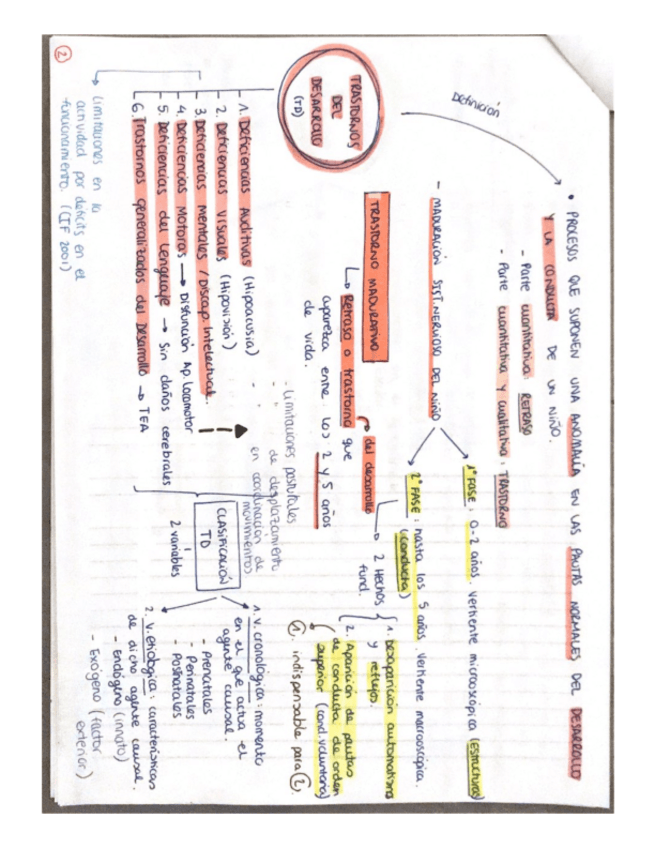 TRASTORNOS
DEL
DESARROLLO
(TD)
Definición
• PROCESOS QUE SUPONEN UNA ANOMALÍA EN LAS PAUTAS NORMALES DEL DESARROLLO
Y LA CONDUCTA DE UN NIÑO.
- Parte cuantitativa: RETRASO
- Parte cuantitativa y cualitativa: TRASTORNO
- MADURACIÓN SIST. NERVIOSO DEL NIÑO
1ª FASE: 0-2 años. Vertiente microscópica (ESTRUCTURAS)
2ª FASE: hasta los 5 años. Vertiente macroscópica.
(conducta)
TRASTORNO MADURATIVO
↳ Retraso o trastorno que
del desarrollo
aparezca entre los 2 y 5 años
de vida.
2 Hechos
fund.
1. Desaparición automatismos
y reflejos.
2. Aparición de pautas
de conducta de orden
superior (cond. voluntaria)
①. indispensable para ②.
1. Deficiencias Auditivas (Hipoacusia)
2. Deficiencias Visuales (Hipovisión)
3. Deficiencias Mentales / Discap. Intelectual.
4. Deficiencias Motoras → Disfunción Ap. locomotor
5. Deficiencias del Lenguaje → Sin daños cerebrales
6. Trastornos generalizados del Desarrollo → TEA
- Limitaciones posturales
- " de desplazamiento
- " en coordinación de
movimientos)
↳ Limitaciones en la
actividad por déficits en el
funcionamiento. (CIF 2001)
CLASIFICACIÓN
TD
2 variables
1. V. cronológica: momento
en el que actúa el
agente causal.
- Prenatales
- Perinatales
- Postnatales
2. V. etiológica: características
de dicho agente causal.
- Endógeno (innato)
- Exógeno (factor
exterior)
②